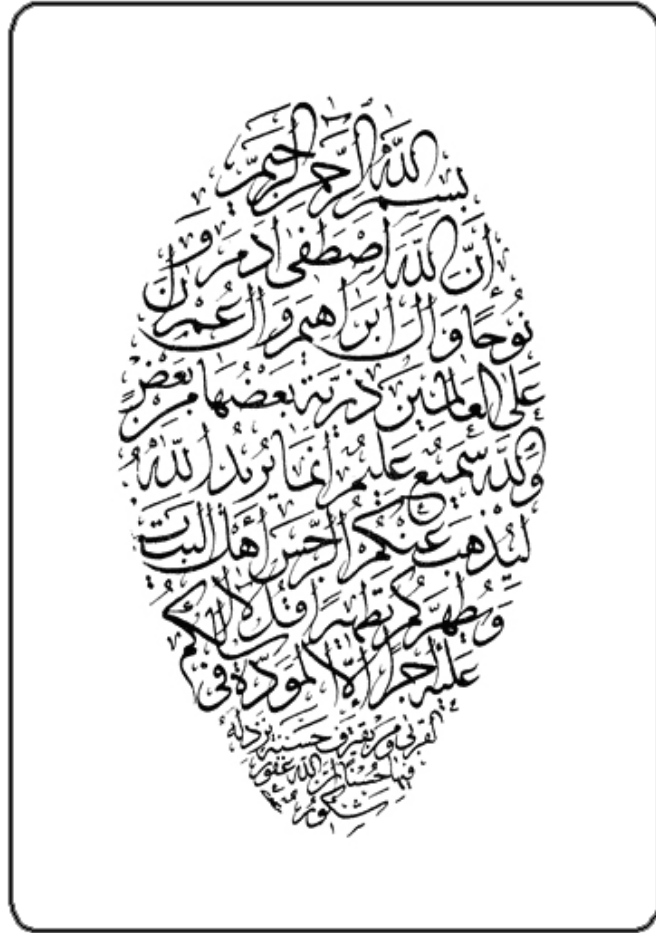 بسم الله الرحمن الرحيم
إن الله اصطفى آدم و
نوحا وآل ابراهيم وآل عمران
على العالمين ذرية بعضها من بعض
والله سميع عليم إنما يريد الله
ليذهب عنكم الرجس أهل البيت
ويطهركم تطهيرا قل لا أسألكم
عليه أجرا إلا المودة في
القربى ومن يقترف حسنة نزد له
فيها حسنا إن الله غفور
شكور